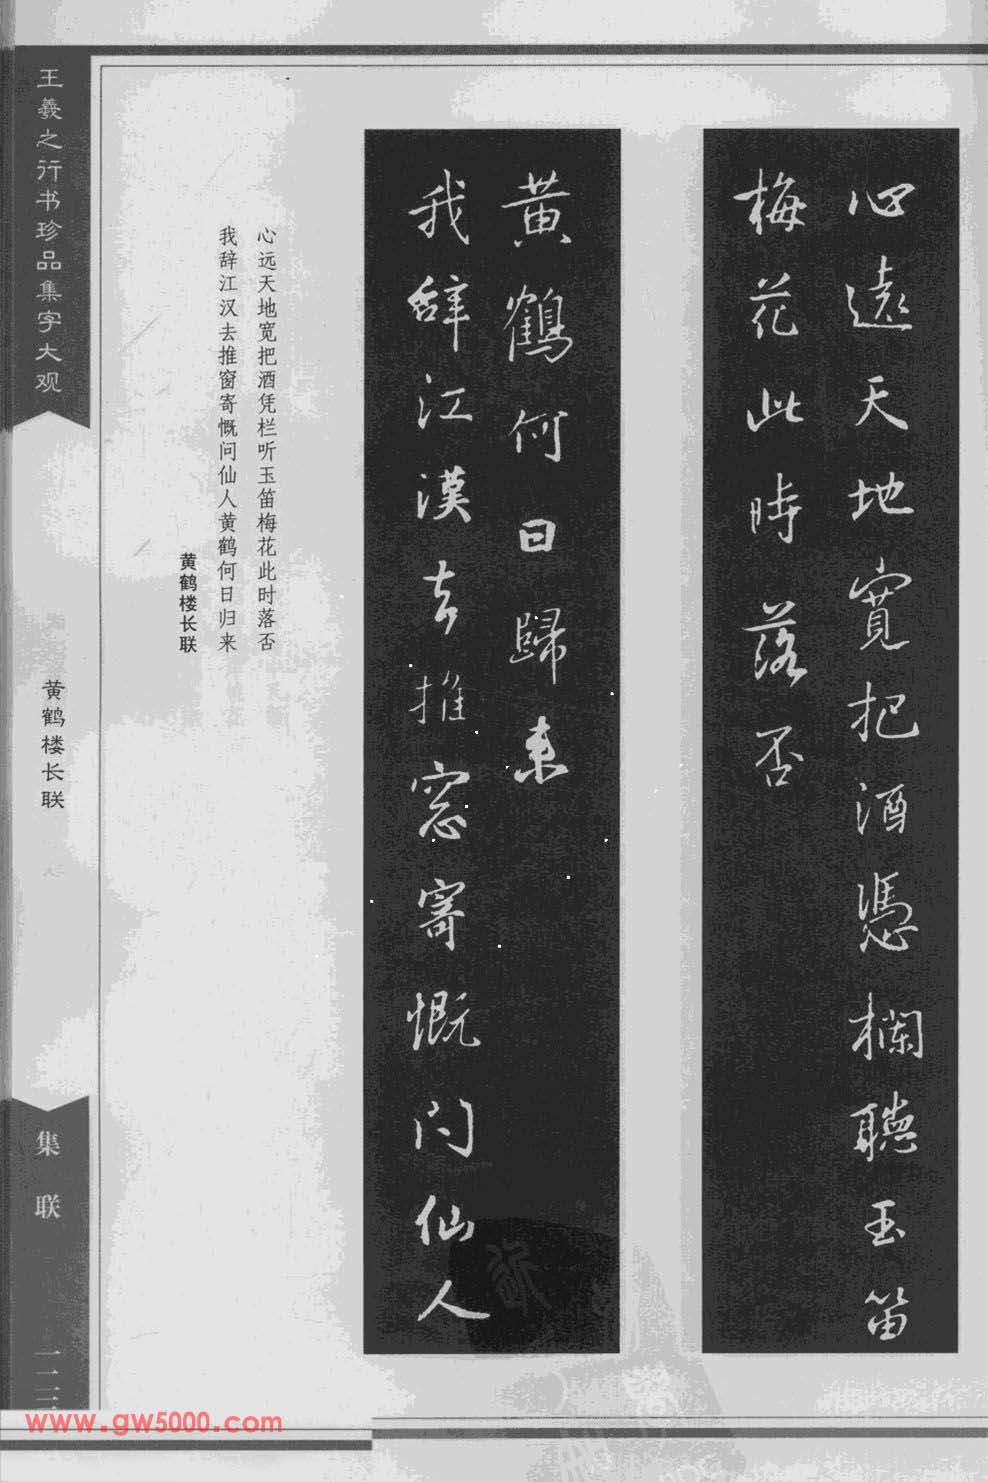 心遠天地寬把酒憑欄聽玉笛
梅花此時落否
我辭江漢去推窓寄慨问仙人
黄鶴何日歸来
心远天地宽把酒凭栏听玉笛梅花此时落否
我辞江汉去推窗寄慨问仙人黄鹤何日归来
黄鹤楼长联
王羲之行书珍品集字大观
黄鹤楼长联
集联
www.gw5000.com